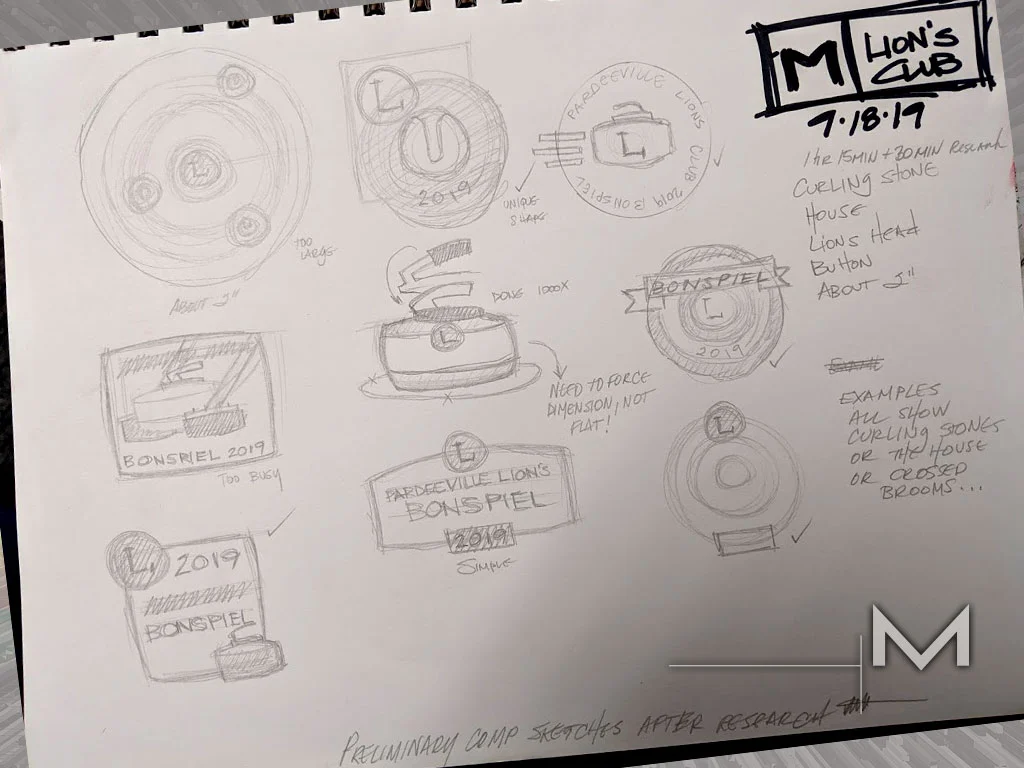 M LION'S
CLUB
9.18.19
1 HR 15 MIN + 30 MIN RESEARCH
CURLING STONE
HOUSE
LIONS HEAD
BUTTON
ABOUT 2"
EXAMPLES
ALL SHOW
CURLING STONES
OR THE HOUSE
OR CROSSED
BROOMS...
L
TOO
LARGE
ABOUT 2"
L
2019
UNIQUE
SHAPE
PARDEEVILLE LIONS CLUB 2019 BONSPIEL
L
L
DONE 1000X
NEED TO FORCE
DIMENSION, NOT
FLAT!
BONSPIEL
L
2019
BONSPIEL 2019
TOO BUSY
L
PARDEEVILLE LION'S
BONSPIEL
2019
SIMPLE
L
L
2019
BONSPIEL
M
PRELIMINARY COMP SKETCHES AFTER RESEARCH